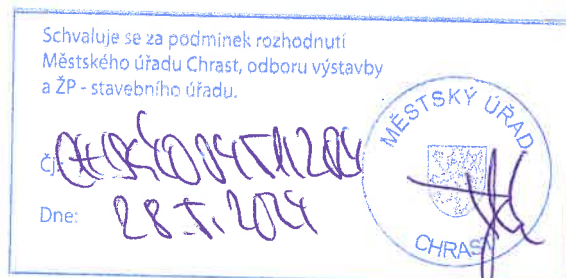 Schvaluje se za podmínek rozhodnutí
Městského úřadu Chrast, odboru výstavby
a ŽP - stavebního úřadu.
Čj.
Dne: 28. 5. 2024
MĚSTSKÝ ÚŘAD
CHRAST